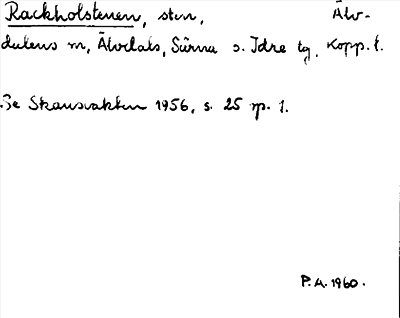 Rackholstenen, sten, Älv-
dalens m, Älvdals, Särna o. Idre tg. Kopp. l.
Se Skansvakten 1956, s. 25 sp. 1.
P.A. 1960.